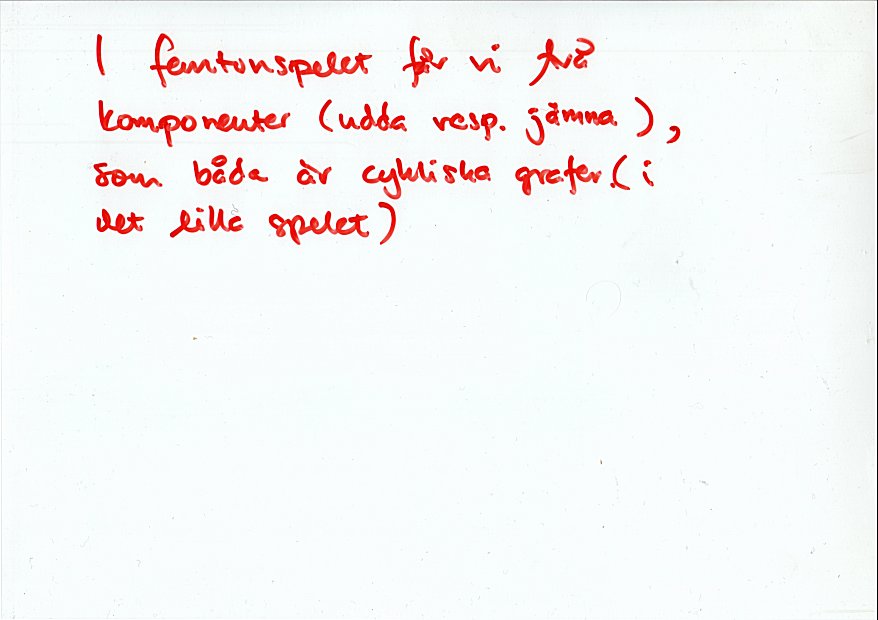 I femtonspelet får vi två
komponenter (udda resp. jämna),
som båda är cykliska grafer. (i
det lilla spelet)